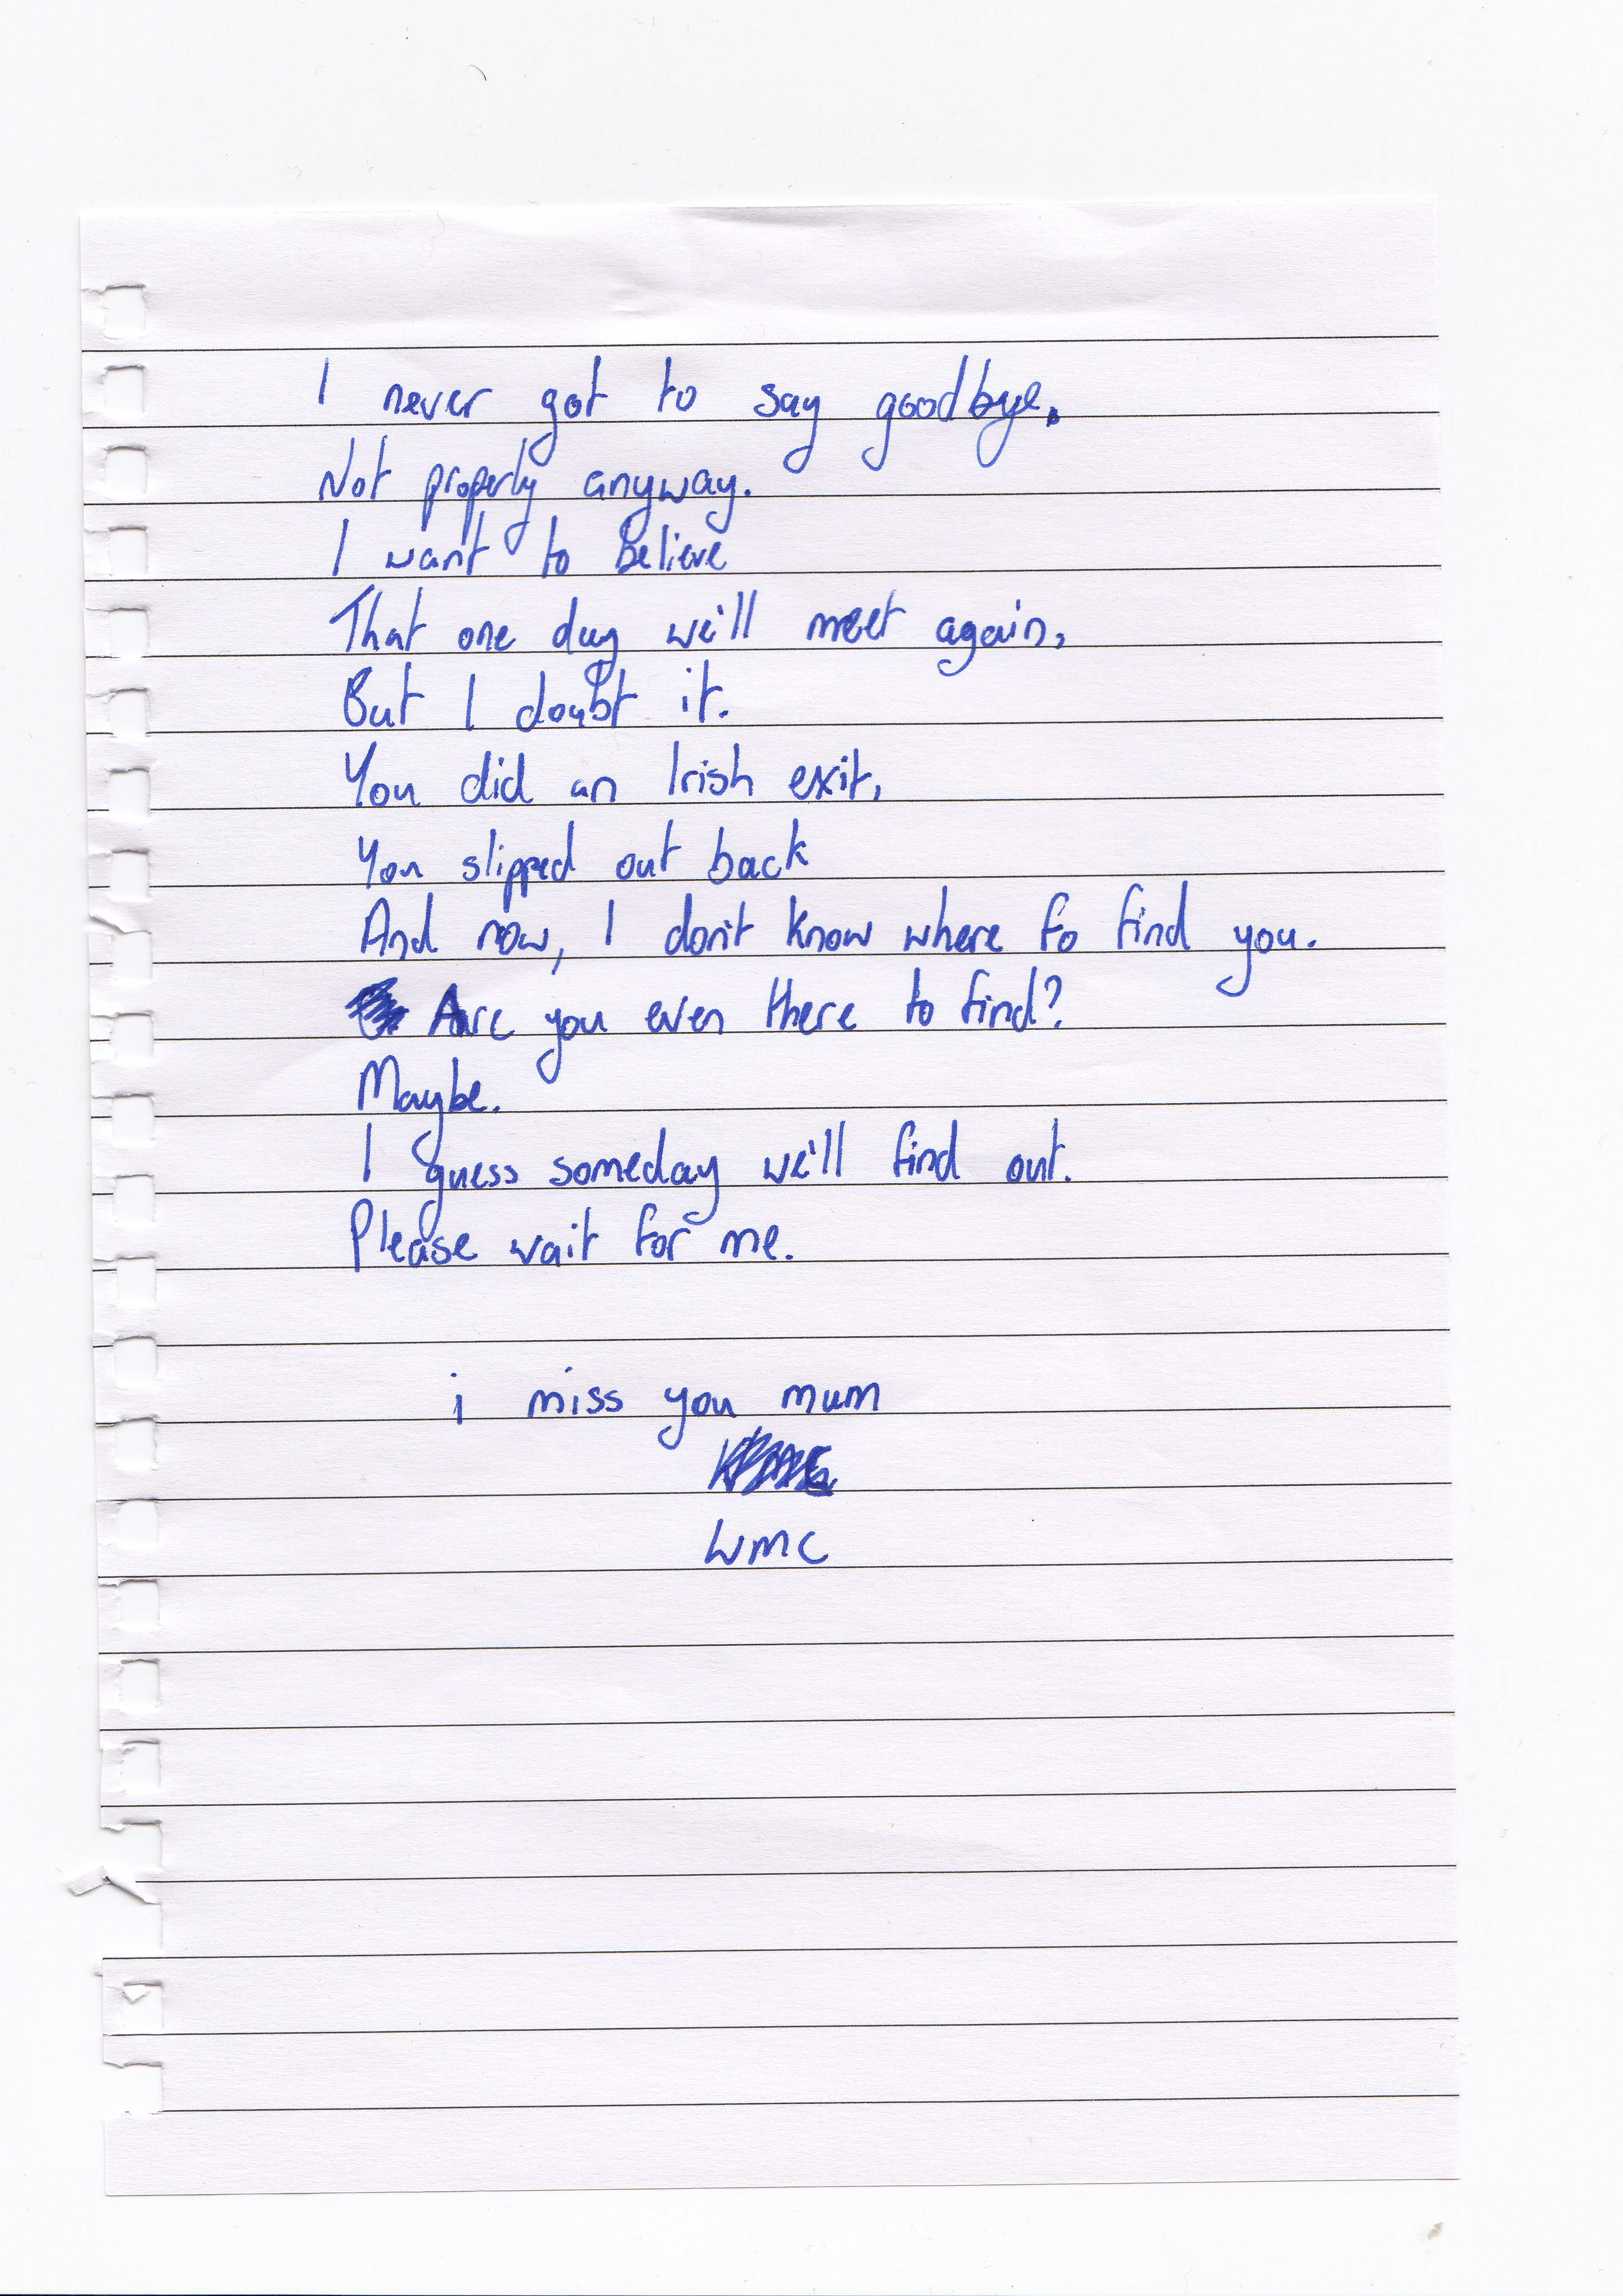 I never got to say goodbye.
Not properly anyway.
I want to believe
That one day we'll meet again,
But I doubt it.
You did an Irish exit,
You slipped out back
And now, I don't know where to find you.
Are you even there to find?
Maybe.
I guess someday we'll find out.
Please wait for me.
i miss you mum
WMC